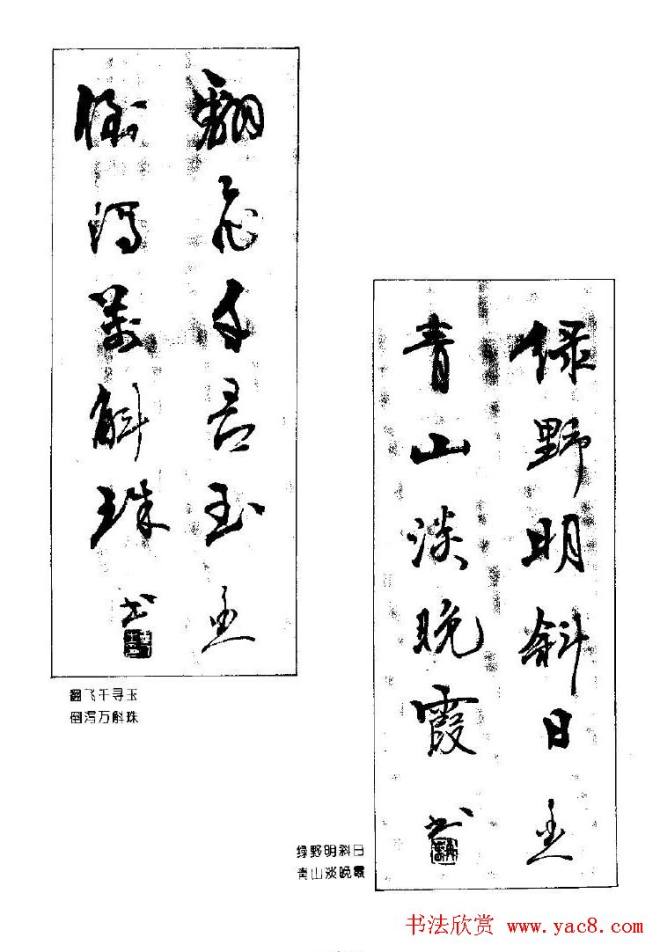 翻飞千寻玉
倒泻万斛珠
翻飞千寻玉
倒泻万斛珠
书
绿野明斜日
青山淡晚霞
书
绿野明斜日
青山淡晚霞
书法欣赏 www.yac8.com